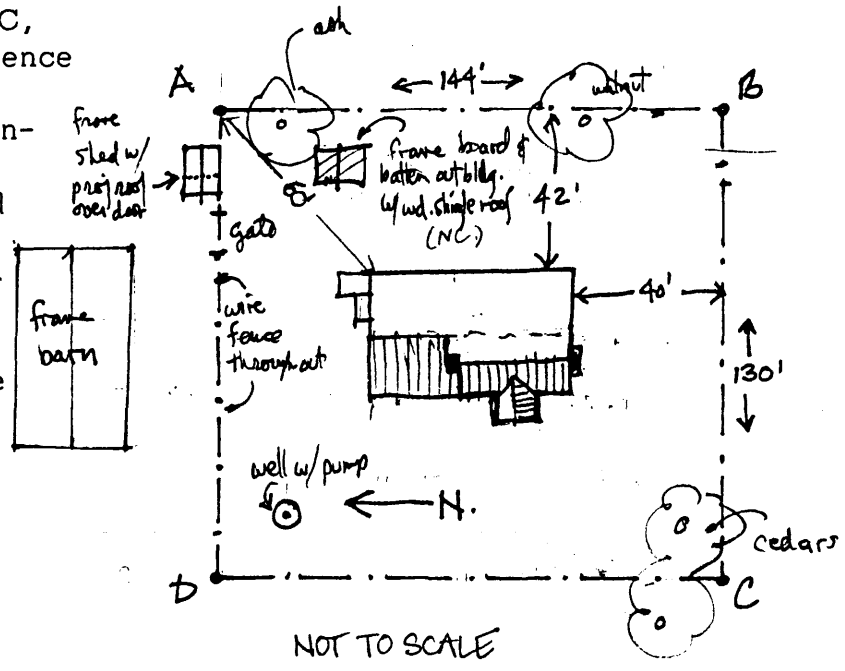 C,
ence
n-
A
ash
144'
walnut
B
frame
shed w/
proj roof
over door
frame board &
batten outbldg.
w/ wd. shingle roof
(NC)
42'
gate
40'
wire
fence
throughout
frame
barn
130'
e
well w/ pump
N.
cedars
D
C
NOT TO SCALE